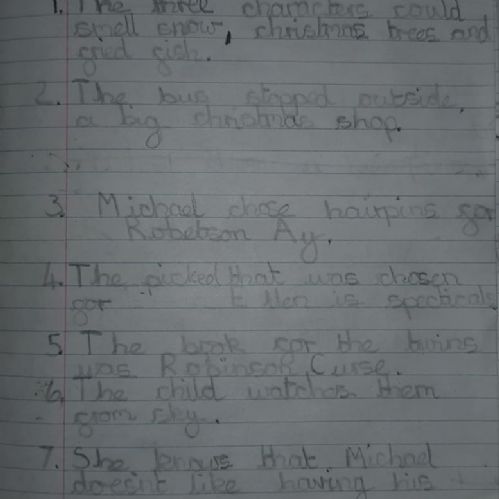 1. The three characters could
smell snow, christmas trees and
gried gish.
2. The bus stopped outside,
a big christmas shop.
3. Michael chose hairpins gor
Robebson Ay.
4. The picked that was chosen
gor Ellen is spectical
5. The book gor the twins
was Robinsok Curse.
6. The child watches them
grom sky.
7. She knows that Michael
doesnt like having his